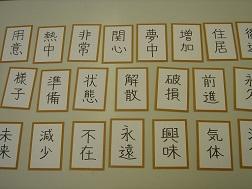 用意 熱中 非常 関心 夢中 増加 住居
様子 準備 状態 解散 破損 前進 永久
未来 減少 不在 永遠 興味 気体